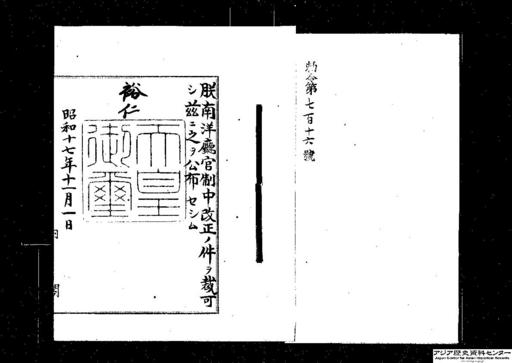 勅令第七百十六號
朕南洋廳官制中改正ノ件ヲ裁可
シ茲ニ之ヲ公布セシム
裕仁
天皇御璽
昭和十七年十一月一日
内閣
アジア歴史資料センター
Japan Center for Asian Historical Records